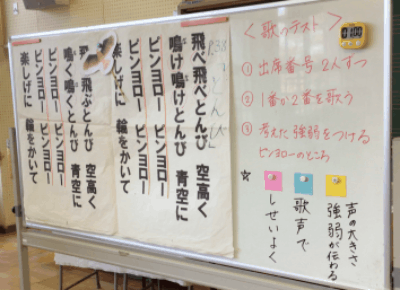 <歌のテスト>
① 出席番号 2人ずつ
② 1番か2番を歌う
③ 考えた強弱をつける
ピンヨローのところ
☆
声の大きさ
強弱が伝わる
歌声で
しせいよく
とんび
飛べ飛べとんび 空高く
鳴け鳴けとんび 青空に
ピンヨロー ピンヨロー
ピンヨロー ピンヨロー
楽しげに 輪をかいて
飛ぶとんび 空高く
鳴く鳴くとんび 青空に
ピンヨロー ピンヨロー
ピンヨロー ピンヨロー
楽しげに 輪をかいて